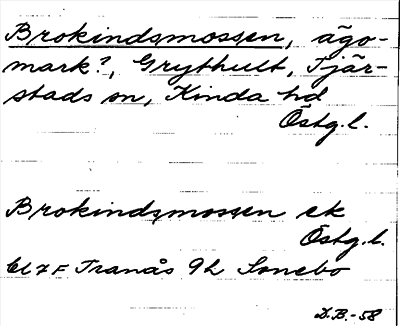 Brokindsmossen, ägo-
mark?, Grythult, Tjär-
stads sn, Kinda hd
Östg.l.
Brokindsmossen ek
Östg.l.
Tranås 9h Sonebo
D.B.-58